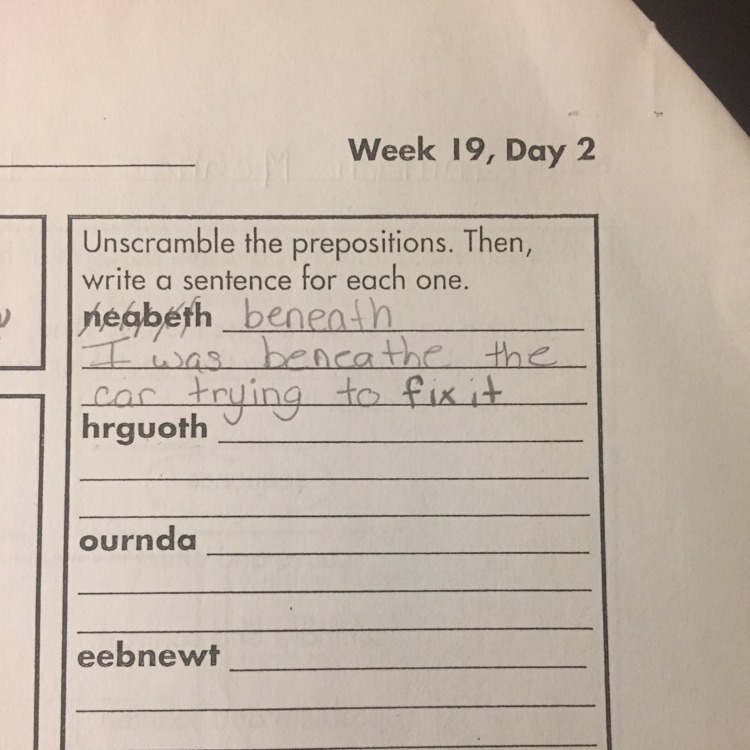 Week 19, Day 2
Unscramble the prepositions. Then,
write a sentence for each one.
neabeth beneath
I was beneathe the
car trying to fix it
hrguoth
ournda
eebnewt